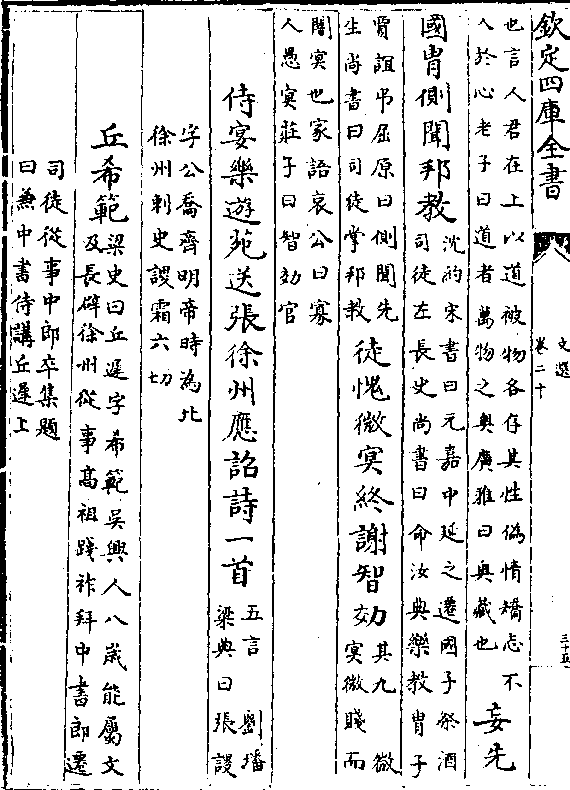 欽定四庫全書
文選
卷二十
三十五
也言人君在上以道被物各存其性偽情矯忘不
入於心老子曰道者萬物之奥廣雅曰奥藏也
妄先
國胄側聞邦教
沈約宋書曰元嘉中延之遷國子祭酒
司徒左長史尚書曰命汝典樂教胄子
賈誼弔屈原曰側聞先
生尚書曰司徒掌邦教
徒愧微冥終謝智効
其九 微
冥微賤而
闇冥也家語哀公曰寡
人愚冥莊子曰智効官
侍宴樂遊苑送張徐州應詔詩一首
五言 劉璠
梁典曰張謖
字公喬齊明帝時為北
徐州刺史謖霜六切
丘希範
梁史曰丘遲字希範吳興人八歲能屬文
及長辟徐州從事高祖踐祚拜中書郎遷
司徒從事中郎卒集題
曰兼中書侍講丘遲上